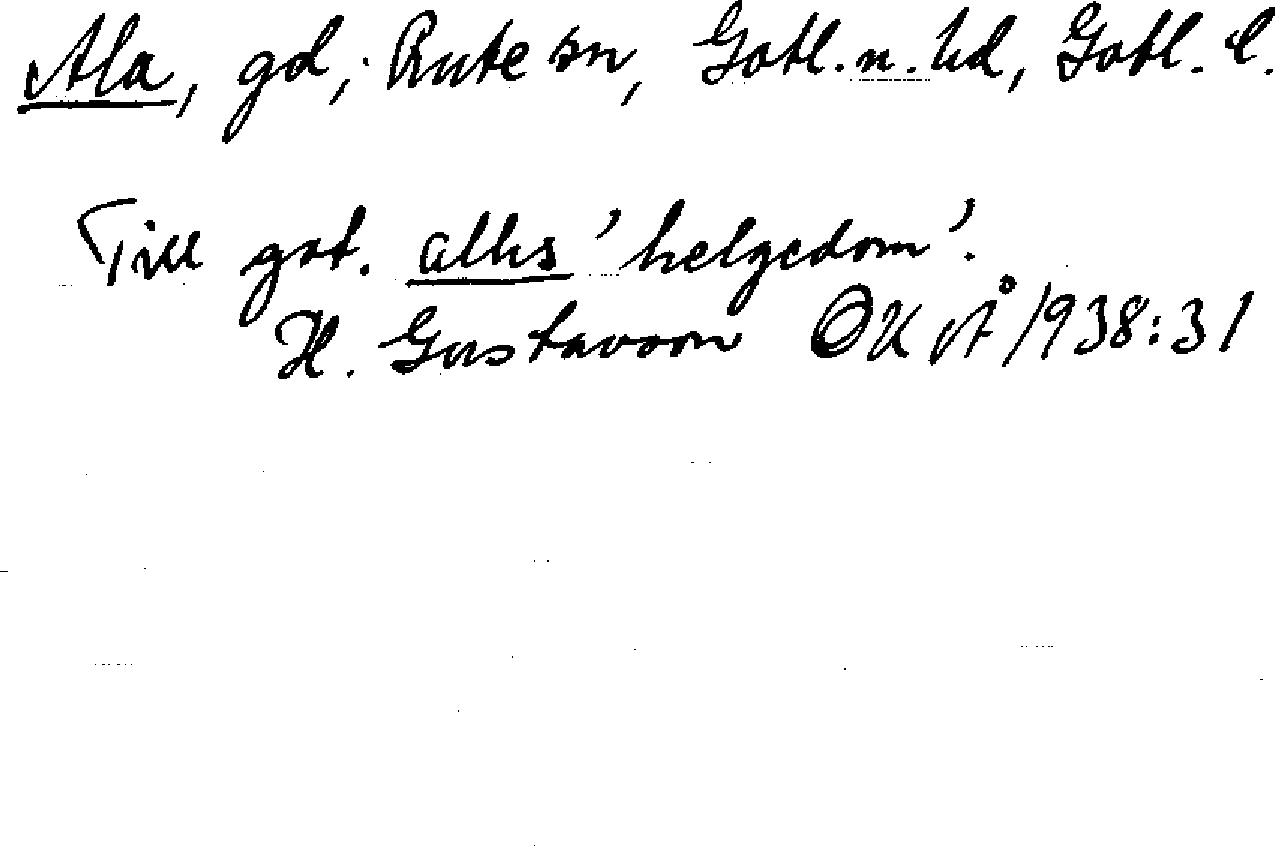 Ala, gd, Rute sn, Gotl. n. hd, Gotl. l.
Till got. alhs 'helgedom'.
H. Gustavson OKÅ 1938:31